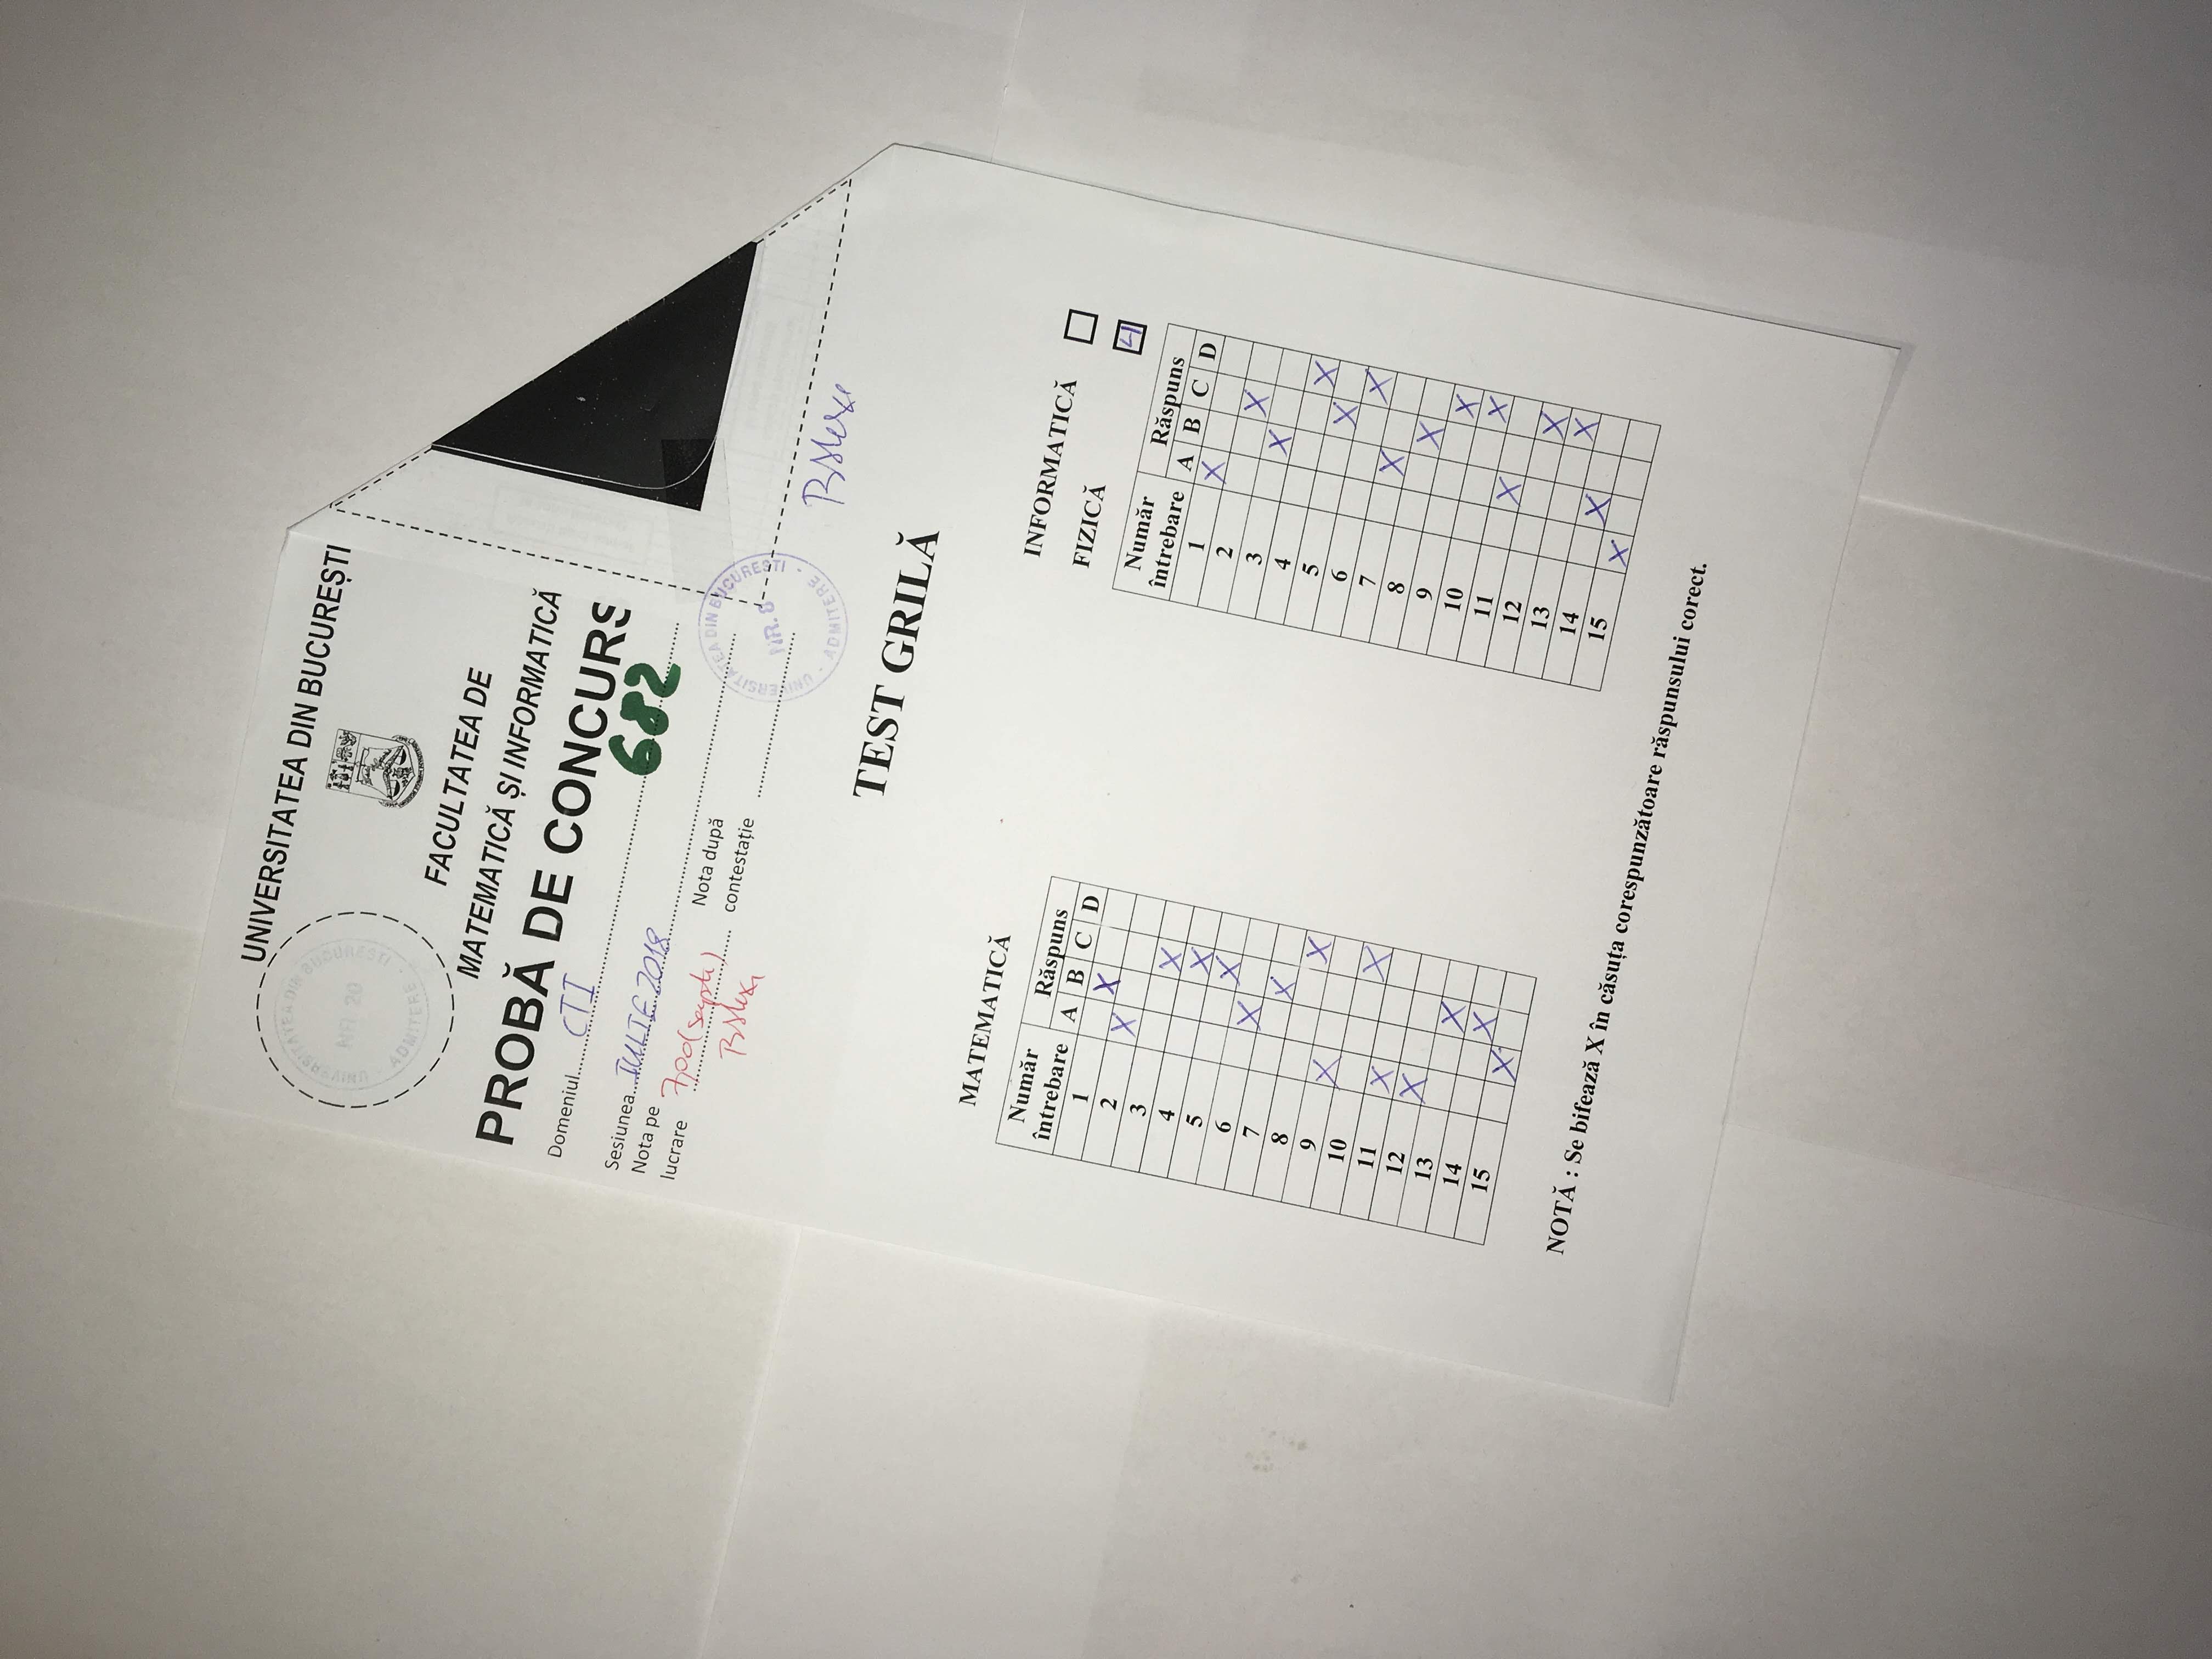 UNIVERSITATEA DIN BUCUREȘTI
UNIVERSITATEA DIN BUCUREȘTI
NR. 20
ADMITERE
FACULTATEA DE
MATEMATICĂ ȘI INFORMATICĂ
PROBĂ DE CONCURS
Domeniul CTI
682
Sesiunea IULIE 2018
Nota pe
lucrare 7,00 (șapte)
Nota după
contestație
UNIVERSITATEA DIN BUCUREȘTI
NR. 8
ADMITERE
TEST GRILĂ
MATEMATICĂ
Număr
întrebare
Răspuns
A B C D
1 X
2 X
3 X
4 X
5 X
6 X
7 X
8 X
9 X
10 X
11 X
12 X
13 X
14 X
15 X
INFORMATICĂ
FIZICĂ 4
Număr
întrebare
Răspuns
A B C D
1 X
2 X
3 X
4 X
5 X
6 X
7 X
8 X
9 X
10 X
11 X
12 X
13 X
14 X
15 X
NOTĂ : Se bifează X în căsuța corespunzătoare răspunsului corect.